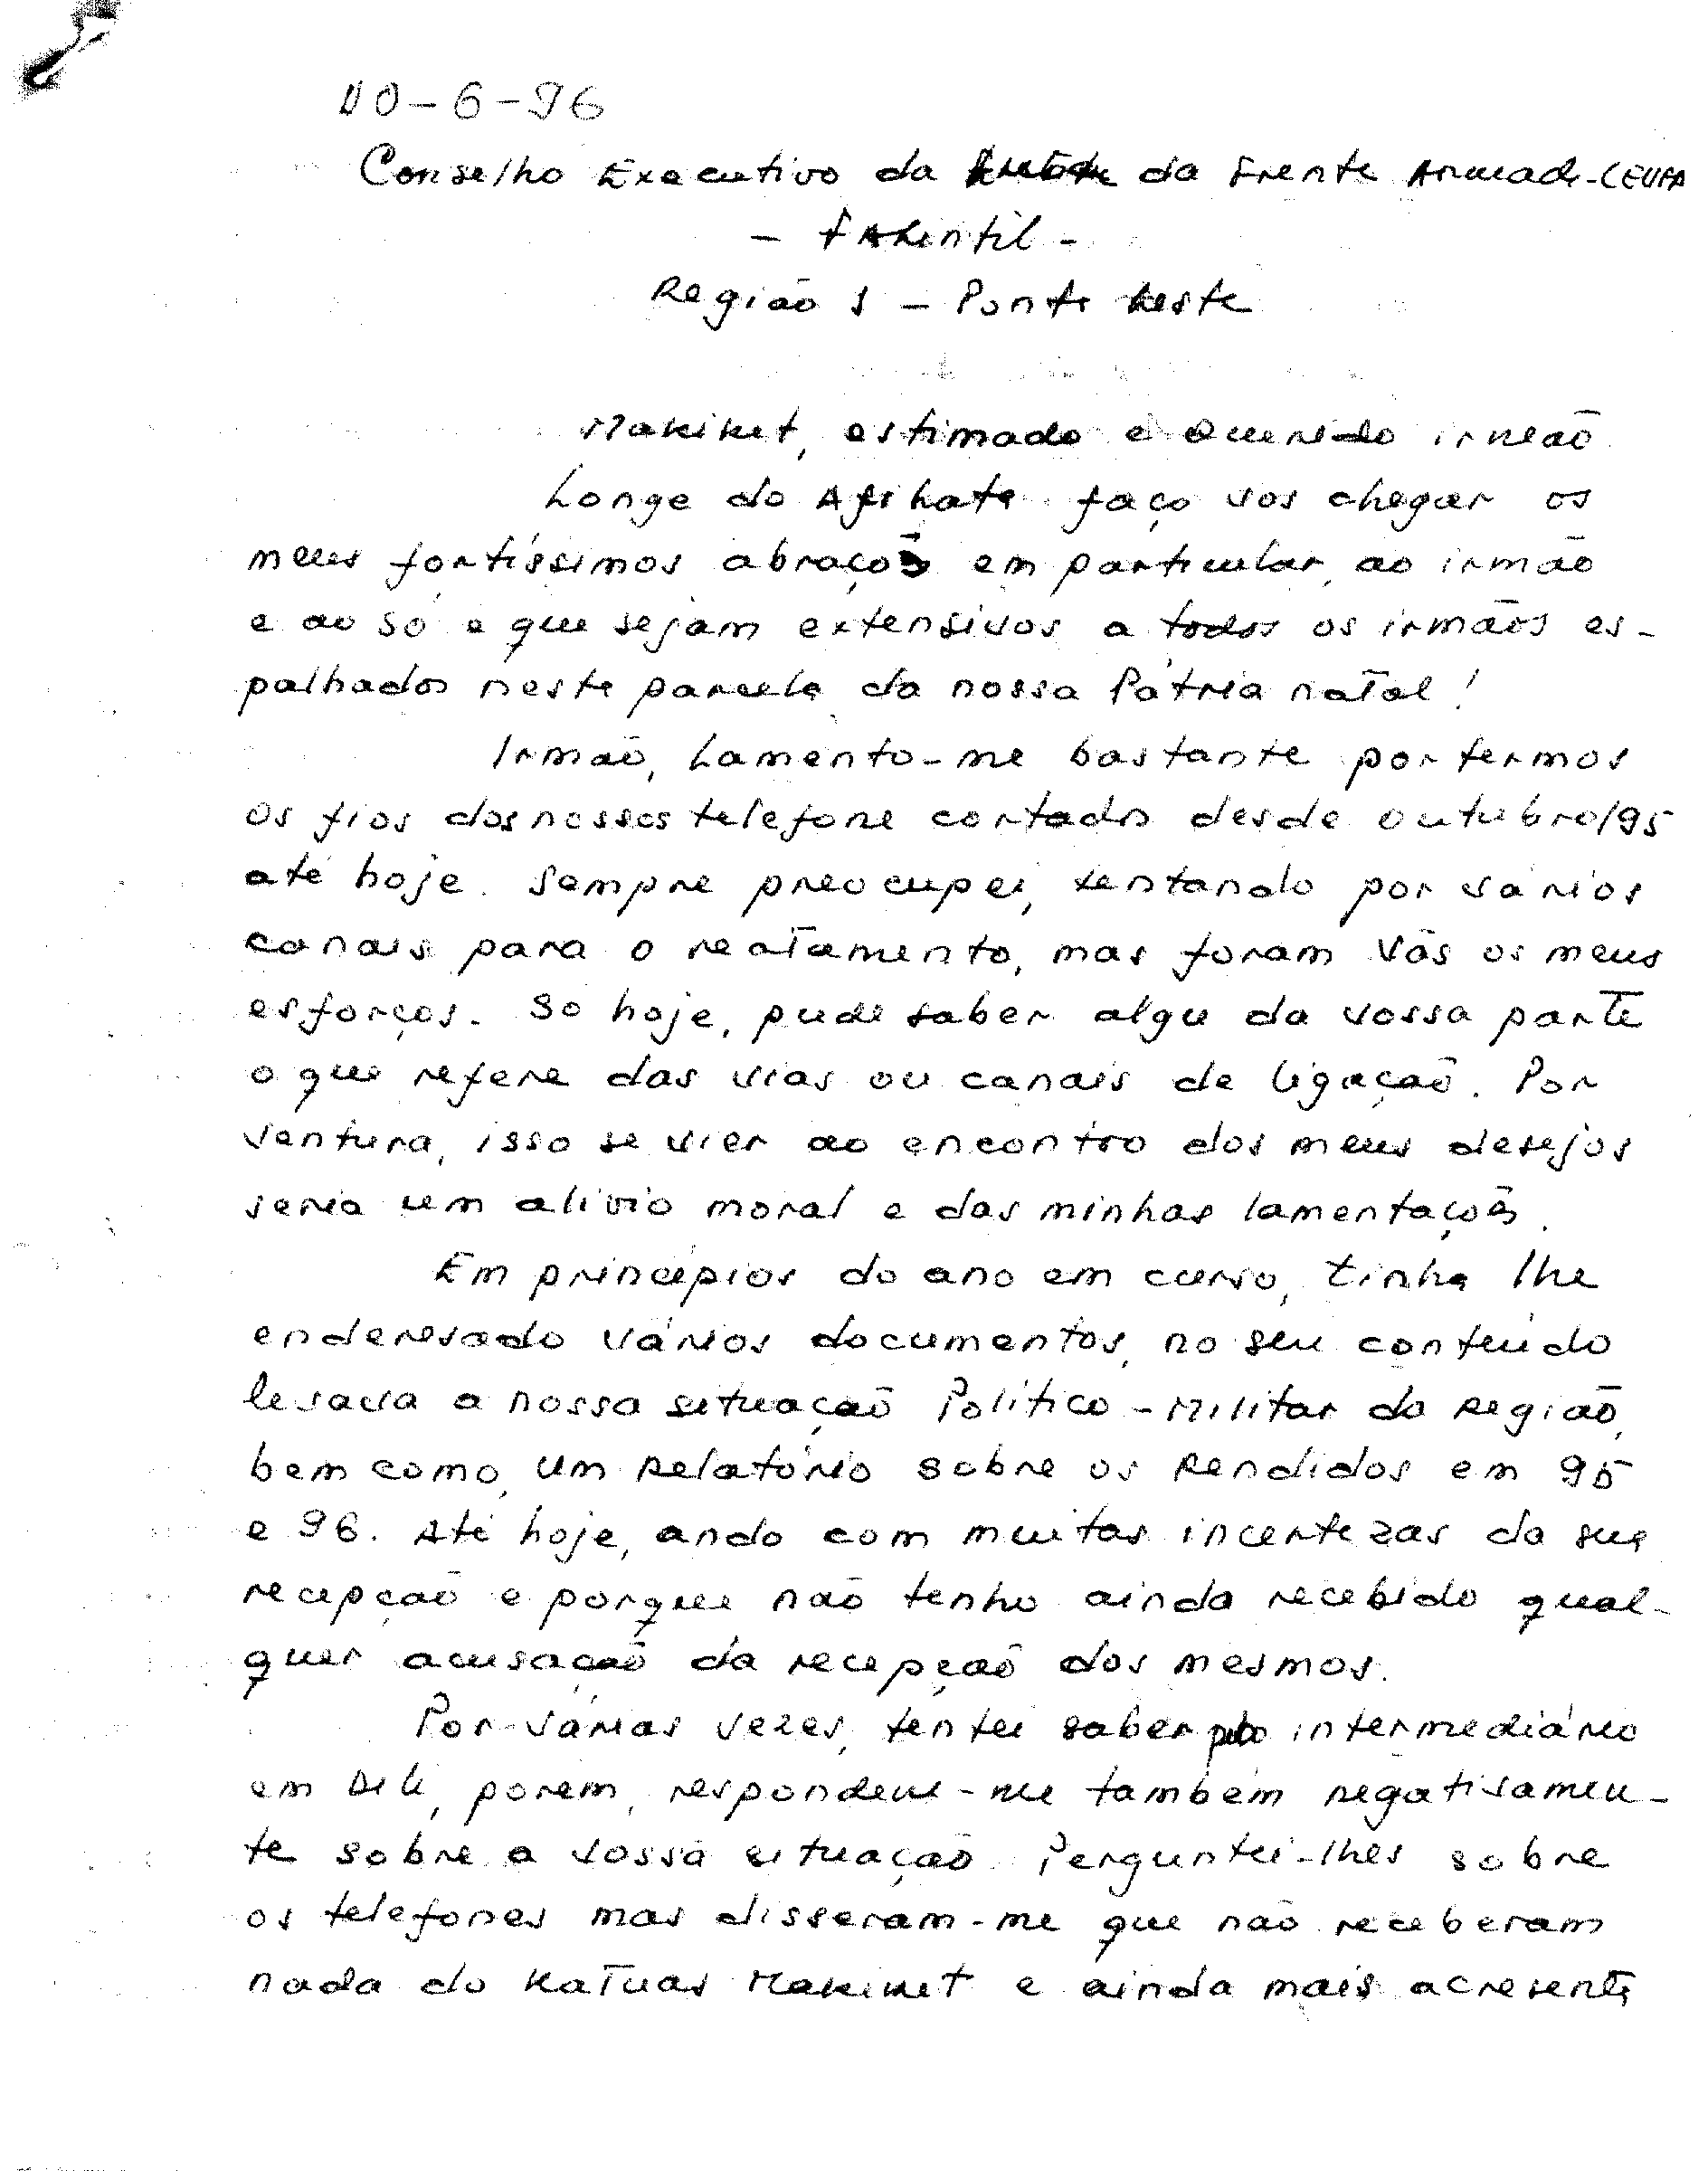 10-6-96
Conselho Executivo da Luta da Frente Armada-CELFA
- FALintil -
Região 1 - Ponte Leste
Makikit, estimado e Querido irmão
Longe do faço vos chegar os
meus fortíssimos abraços em particular, ao irmão
e ao só e que sejam extensivos a todos os irmãos es-
palhados neste parcela da nossa Pátria natal!
Irmão, Lamento-me bastante por termos
os fios dos nossos telefone cortados desde outubro/95
até hoje. Sempre preocupei, tentando por vários
canais para o reatamento, mas foram vãs os meus
esforços. Só hoje, pude saber algu da vossa parte
o que refere das vias ou canais de ligação. Por
ventura, isso se vier ao encontro dos meus desejos
seria um alivio moral e das minhas lamentações.
Em principios do ano em curso, tinha lhe
enderesado vários documentos, no seu conteúdo
levava a nossa situação Politico-Militar da Região,
bem como, um Relatório sobre os Rendidos em 95
e 96. Até hoje, ando com muitas incertezas da sua
recepção e porque não tenho ainda recebido qual-
quer acusação da recepção dos mesmos.
Por várias vezes, tentei saber pelo intermediário
em Dili, porem, respondeu-me também negativamen-
te sobre a vossa situação. Perguntei-lhes sobre
os telefones mas disseram-me que não receberam
nada do Katuas Makikit e ainda mais acresenta